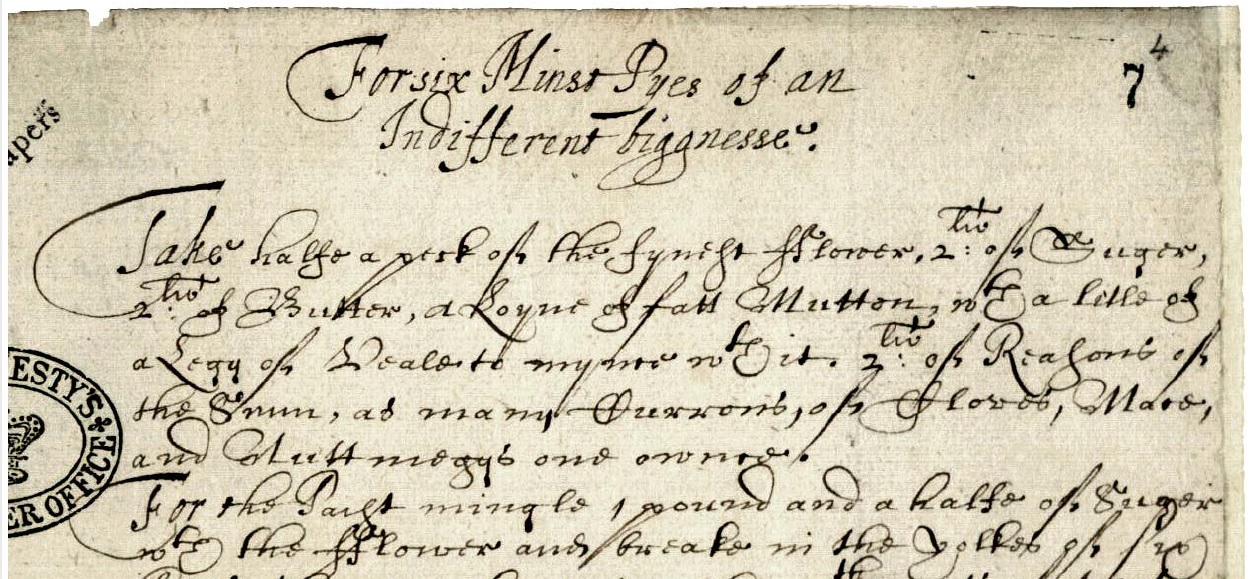 4
7
For six Minst Pyes of an
Indifferent biggnesse.
apers
Take halfe a peck of the fynest fflower, 2:li of Suger,
2:li of Butter, a Loyne of fatt Mutton, wth a litle of
a Legg of Veale to mynce wth it. 2:li of Reasons of
the Sunn, as many Currons, of Cloves, Mace,
and Nuttmeggs one ownce.
For the Paist mingle 1 pound and a halfe of Suger
wth the fflower and breake in the yolkes of six
ESTY'S
ER OFFICE